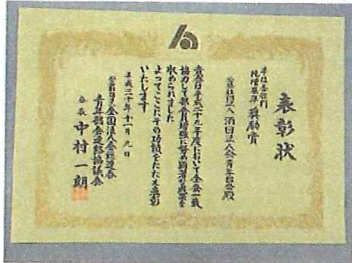 表彰状
単位会部門
純増基準 奨励賞
公益社団法人 酒田法人会青年部会殿
貴会は平成二十九年度において全会一致
協力して部会員増強に努め顕著な成果を
収められました
よってここにその功績をたたえ表彰
いたします
平成三十年十一月九日
公益財団法人全国法人会総連合
青年部会連絡協議会
会長 中村一朗